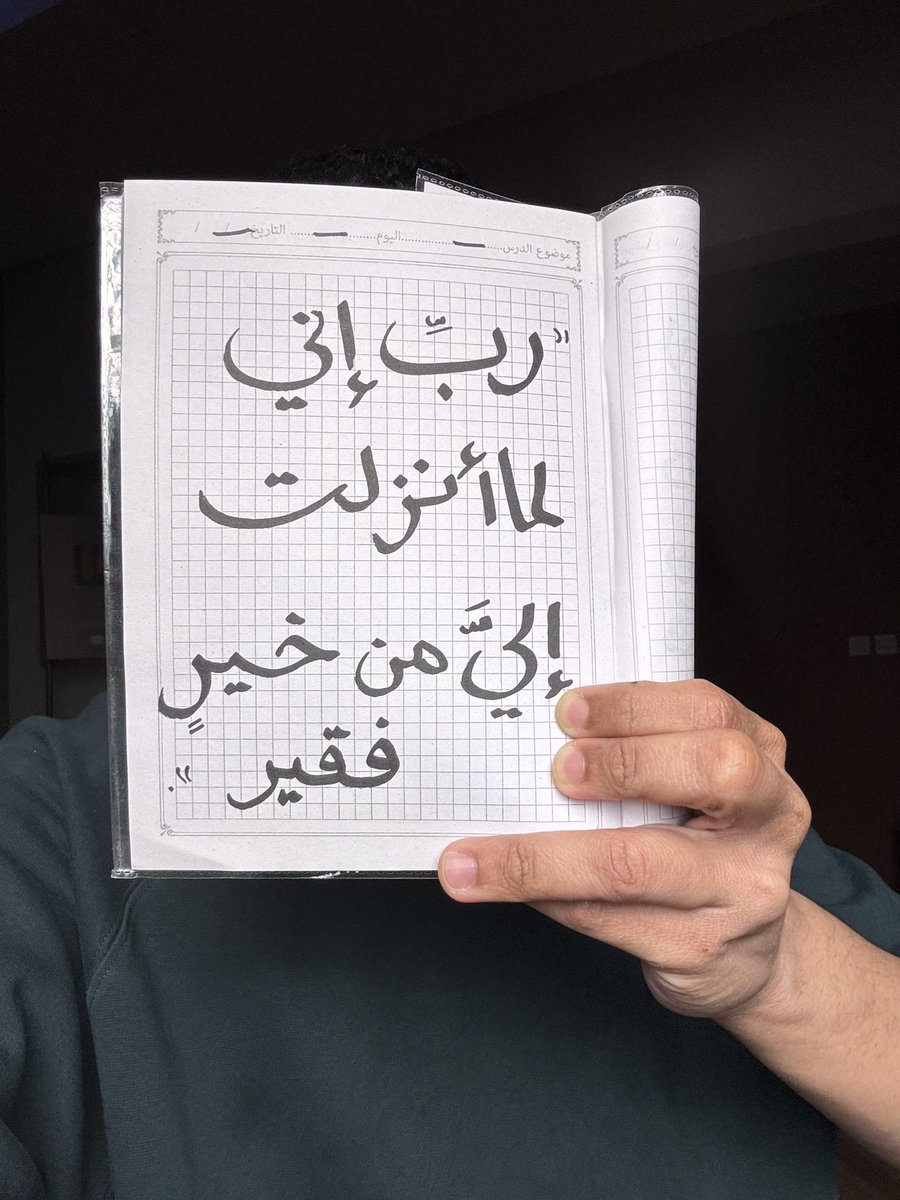 موضوع الدرس..................اليوم..................التاريخ / /
"ربِّ إني
لما أنزلت
إليَّ من خيرٍ
فقير".